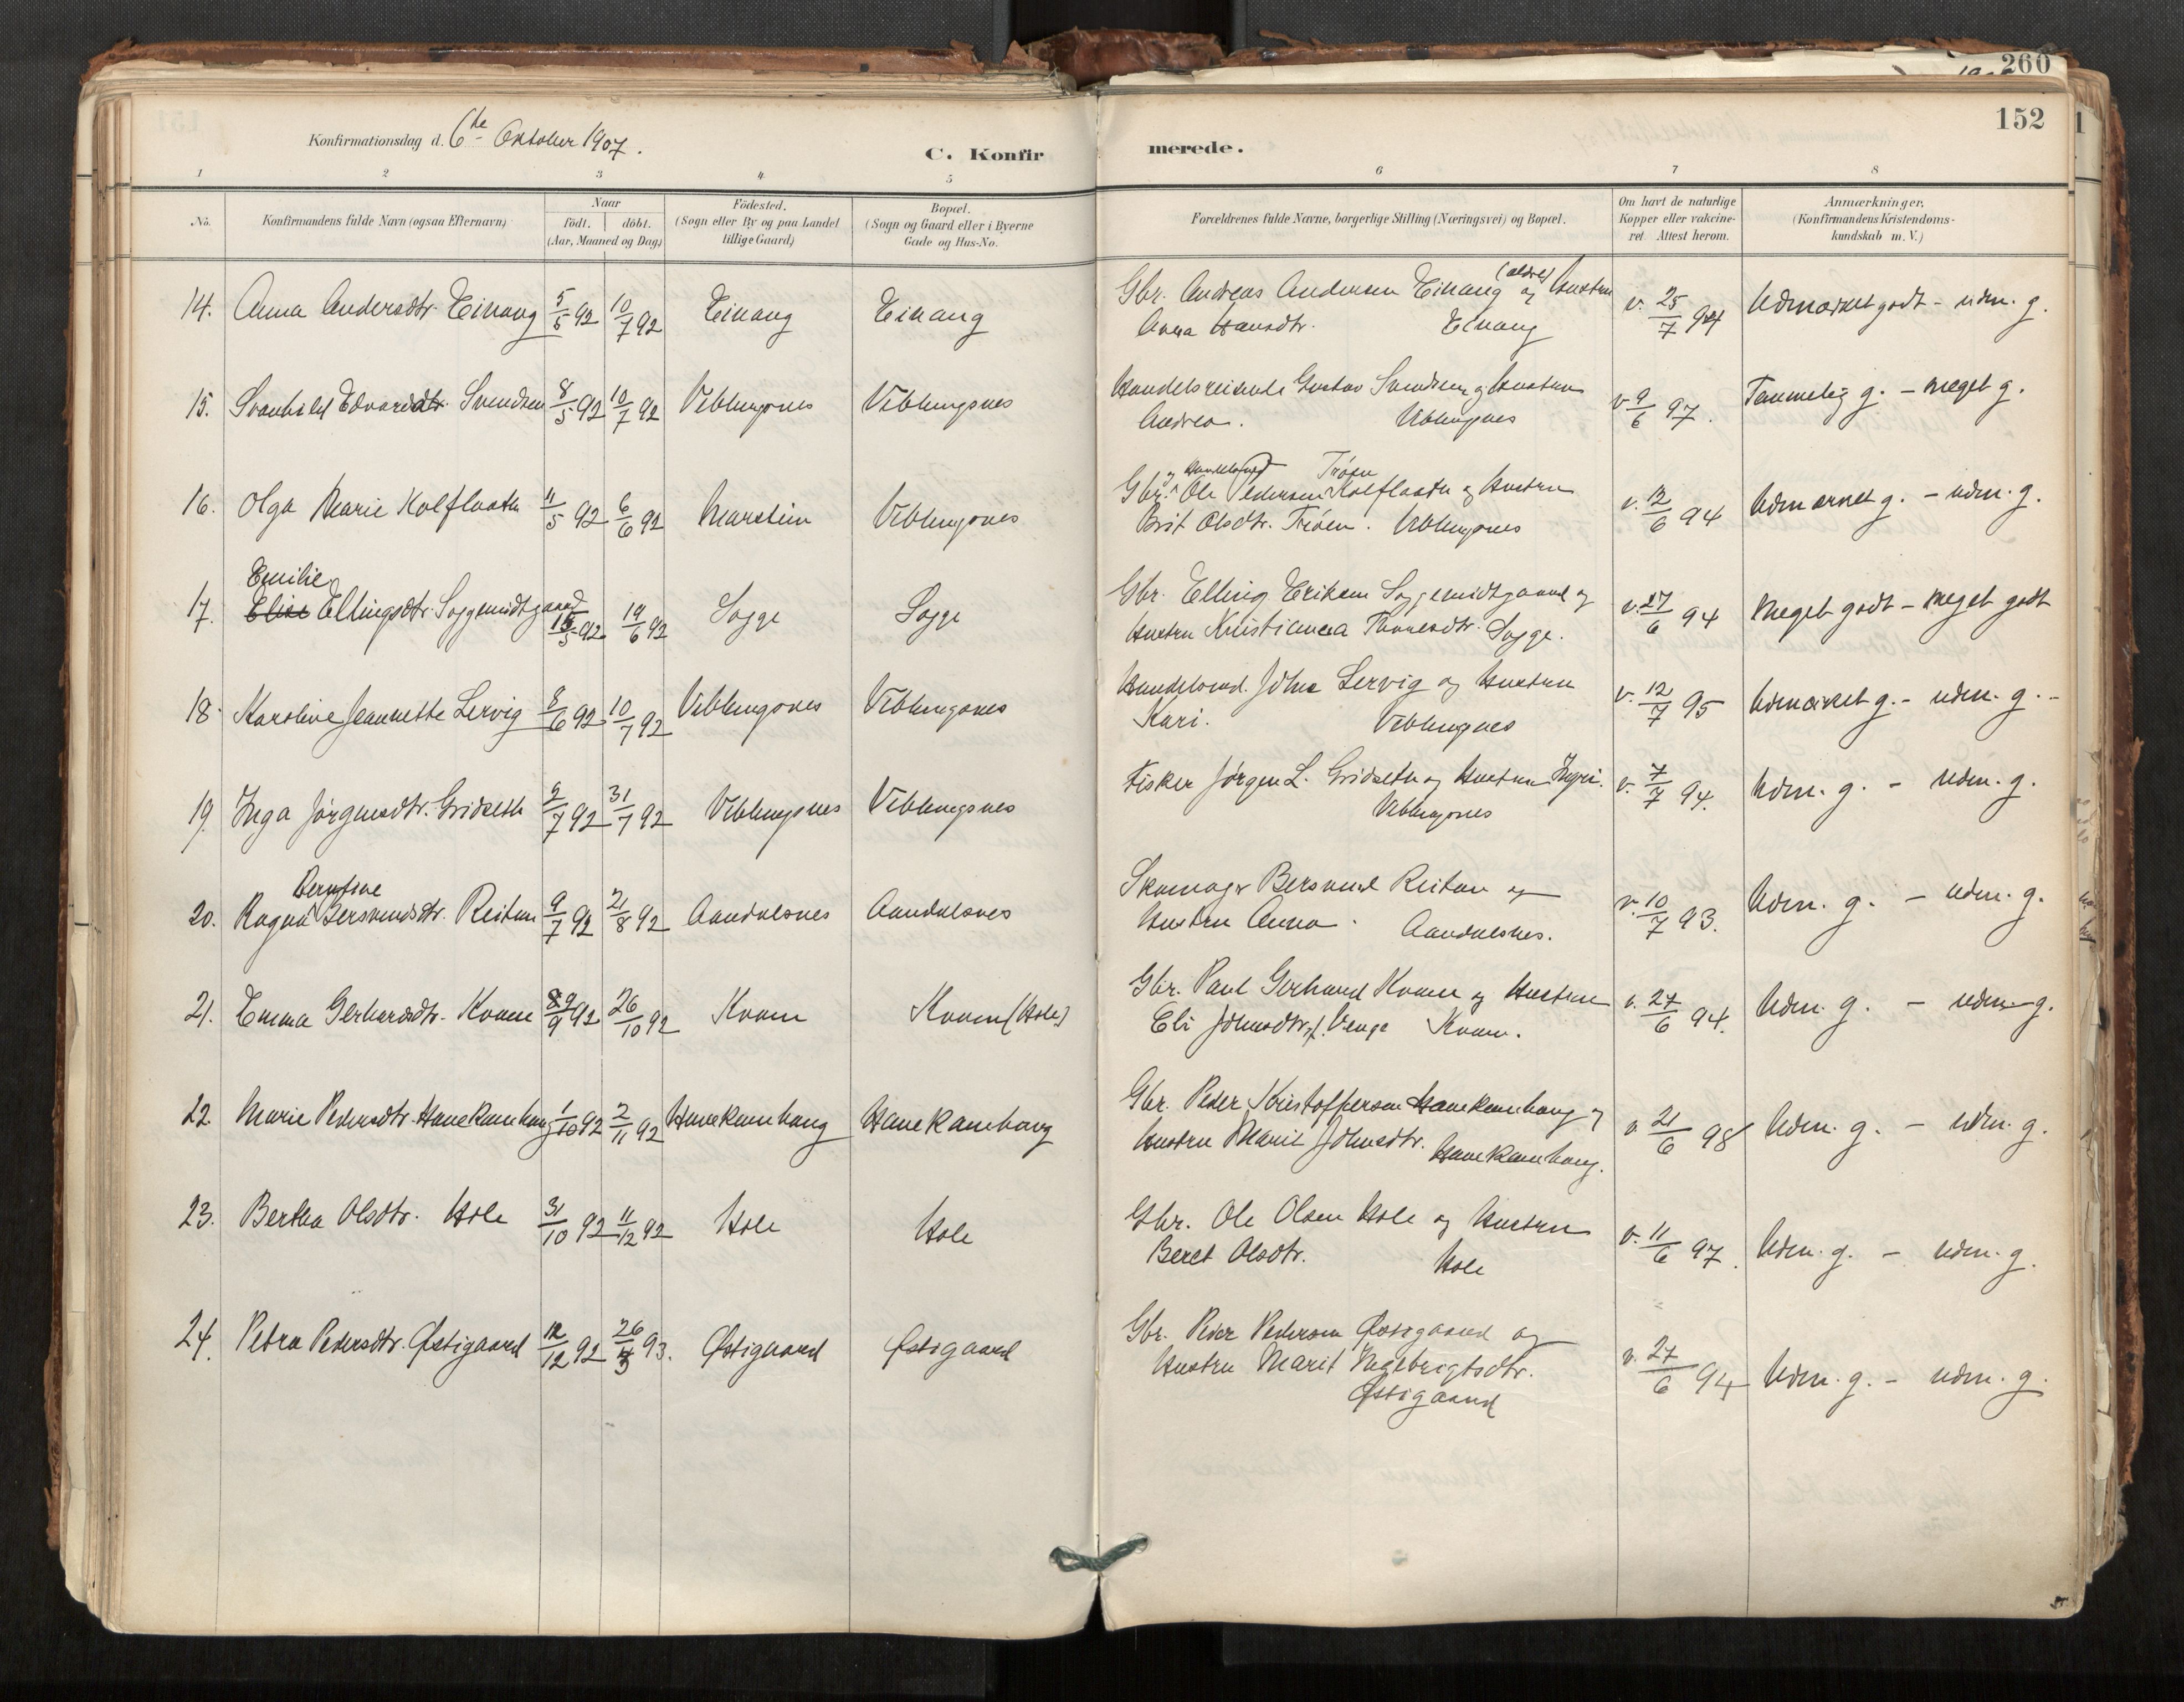 260
152
Konfirmationsdag d. 6te Oktober 1907.
C. Konfirmerede.
1 2 3 4 5 6 7 8
No.
Konfirmandens fulde Navn (ogsaa Efternavn)
Naar
födt. döbt.
(Aar, Maaned og Dag)
Födested.
(Sogn eller By og paa Landet
tillige Gaard)
Bopæl.
(Sogn og Gaard eller i Byerne
Gade og Hus-No.
Forældrenes fulde Navne, borgerlige Stilling (Næringsvei) og Bopæl.
Om havt de naturlige
Kopper eller vakcine-
ret Attest herom.
Anmærkninger.
(Konfirmandens Kristendoms-
kundskab m. V.)
14. Anna Andersdtr. Einang 5/6 92 10/7 92 Einang Einang Gbr. Andreas Andersen Einang (ældre) og Hustru v. 25/7 94 Udmærket godt - udm. g.
Anna Hansdtr. Einang
15. Svanhild Edvardsdtr. Svendsen 8/5 92 10/7 92 Veblungsnes Veblungsnes Handelsreisende Gustav Svendsen og Hustru v 9/6 97. Temmelig g. - meget g.
Andrea. Veblungsnes
16. Olga Marie Kolflaath 11/5 92 6/6 92 Marstein Veblungsnes Gbr. og Handelsmd Ole Pedersen Kolflaath Trøen og Hustru v. 12/6 94 Udmærket g. - udm. g.
Brit Olsdtr. Trøen. Veblungsnes
17. Emilie Ellingsdtr. Soggemidtgaard 15/5 92 19/6 92 Sogge Sogge Gbr. Elling Eriksen Soggemidtgaard og v. 27/6 94 Meget godt - meget godt
Hustru Kristianna Thoresdtr. Sogge.
18. Karoline Jeannette Lervig 8/6 92 10/7 92 Veblungsnes Veblungsnes Handelsmd. John Lervig og Hustru v. 12/7 95 Udmærket g. - udm. g. -
Kari. Veblungsnes
19. Inga Jørgensdtr. Gridseth 2/7 92 31/7 92 Veblungsnes Veblungsnes Fisker Jørgen L. Gridseth og Hustru Ingri. v. 7/7 94. Udm. g. - udm. g.
Veblungsnes
20. Ragna Bersvendsdtr. Reitan 9/7 92 21/8 92 Aandalsnes Aandalsnes Skomager Bersvend Reitan og v. 10/7 93. Udm. g. - udm. g.
Hustru Anna. Aandalsnes.
21. Emma Gerhardsdtr. Kvam 9/9 92 26/10 92 Kvam Kvam (Hole) Gbr. Paul Gerhard Kvam og Hustru v. 27/6 94. Udm. g. - udm. g.
Eli Johnsdtr. f. Venge Kvam.
22. Marie Pedersdtr. Hanekamhaug 1/10 92 2/11 92 Hanekamhaug Hanekamhaug Gbr. Peder Kristoffersen Hanekamhaug og v. 21/6 98 Udm. g. - udm. g.
Hustru Marit Johnsdtr. Hanekamhaug.
23. Bertha Olsdtr. Hole 31/10 92 11/12 92 Hole Hole Gbr. Ole Olsen Hole og Hustru v. 11/6 97. Udm. g. - udm. g.
Beret Olsdtr. Hole
24. Petra Pedersdtr. Østigaard 12/12 92 26/3 93. Østigaard Østigaard Gbr. Peder Pedersen Østigaard og v. 27/6 94 Udm. g. - udm. g.
Hustru Marit Ingebrigtsdtr.
Østigaard